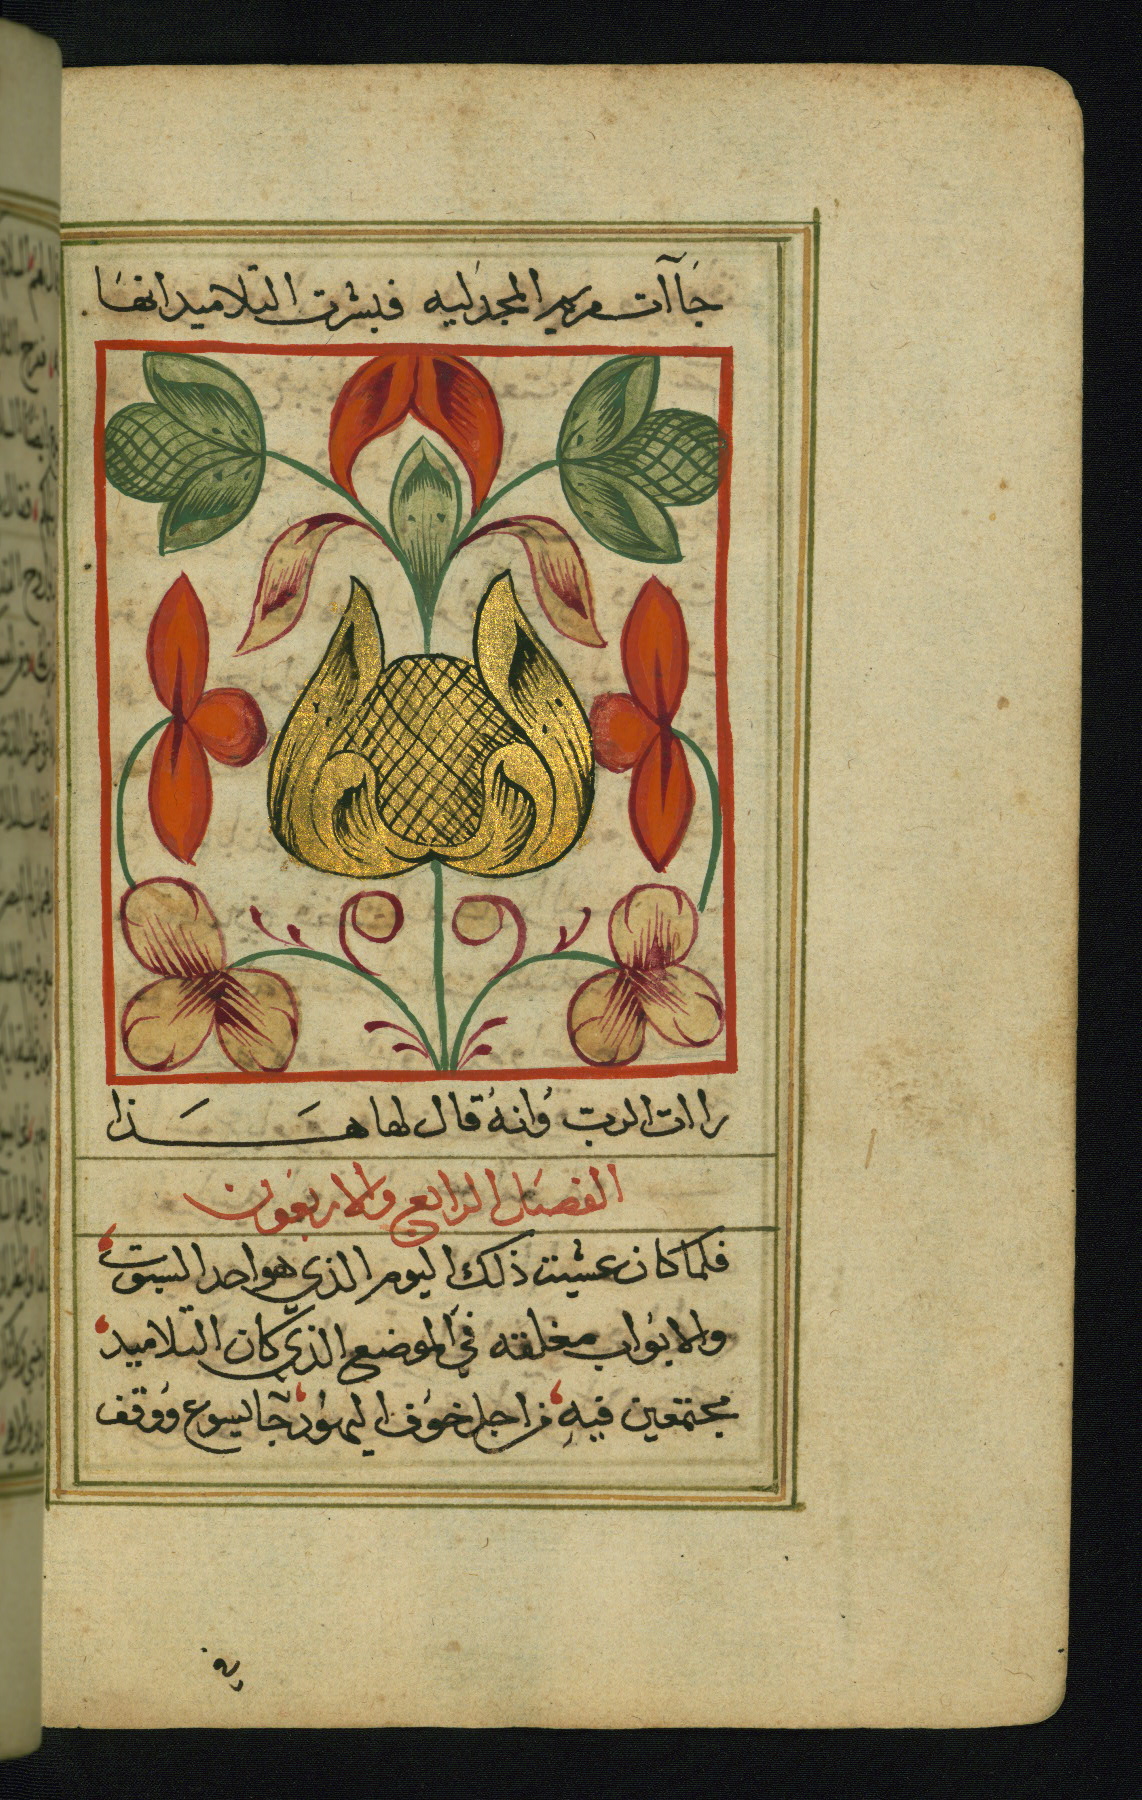 جَاآت مريم المجدَليه فبشرت التلاميد انهَا
راات الربّ وُانهُ قال لها هَـــذا
الفصَل الرابع والاربعَون
فلمَا كان عشيت ذلك اليوم الذي هو احد السبوت
والابوُاب مغلقه في الموضع الذي كان التلاميد
مجتمعين فيهِ من اجل خوُف اليهوُد جآ يسوع ووُقف
في